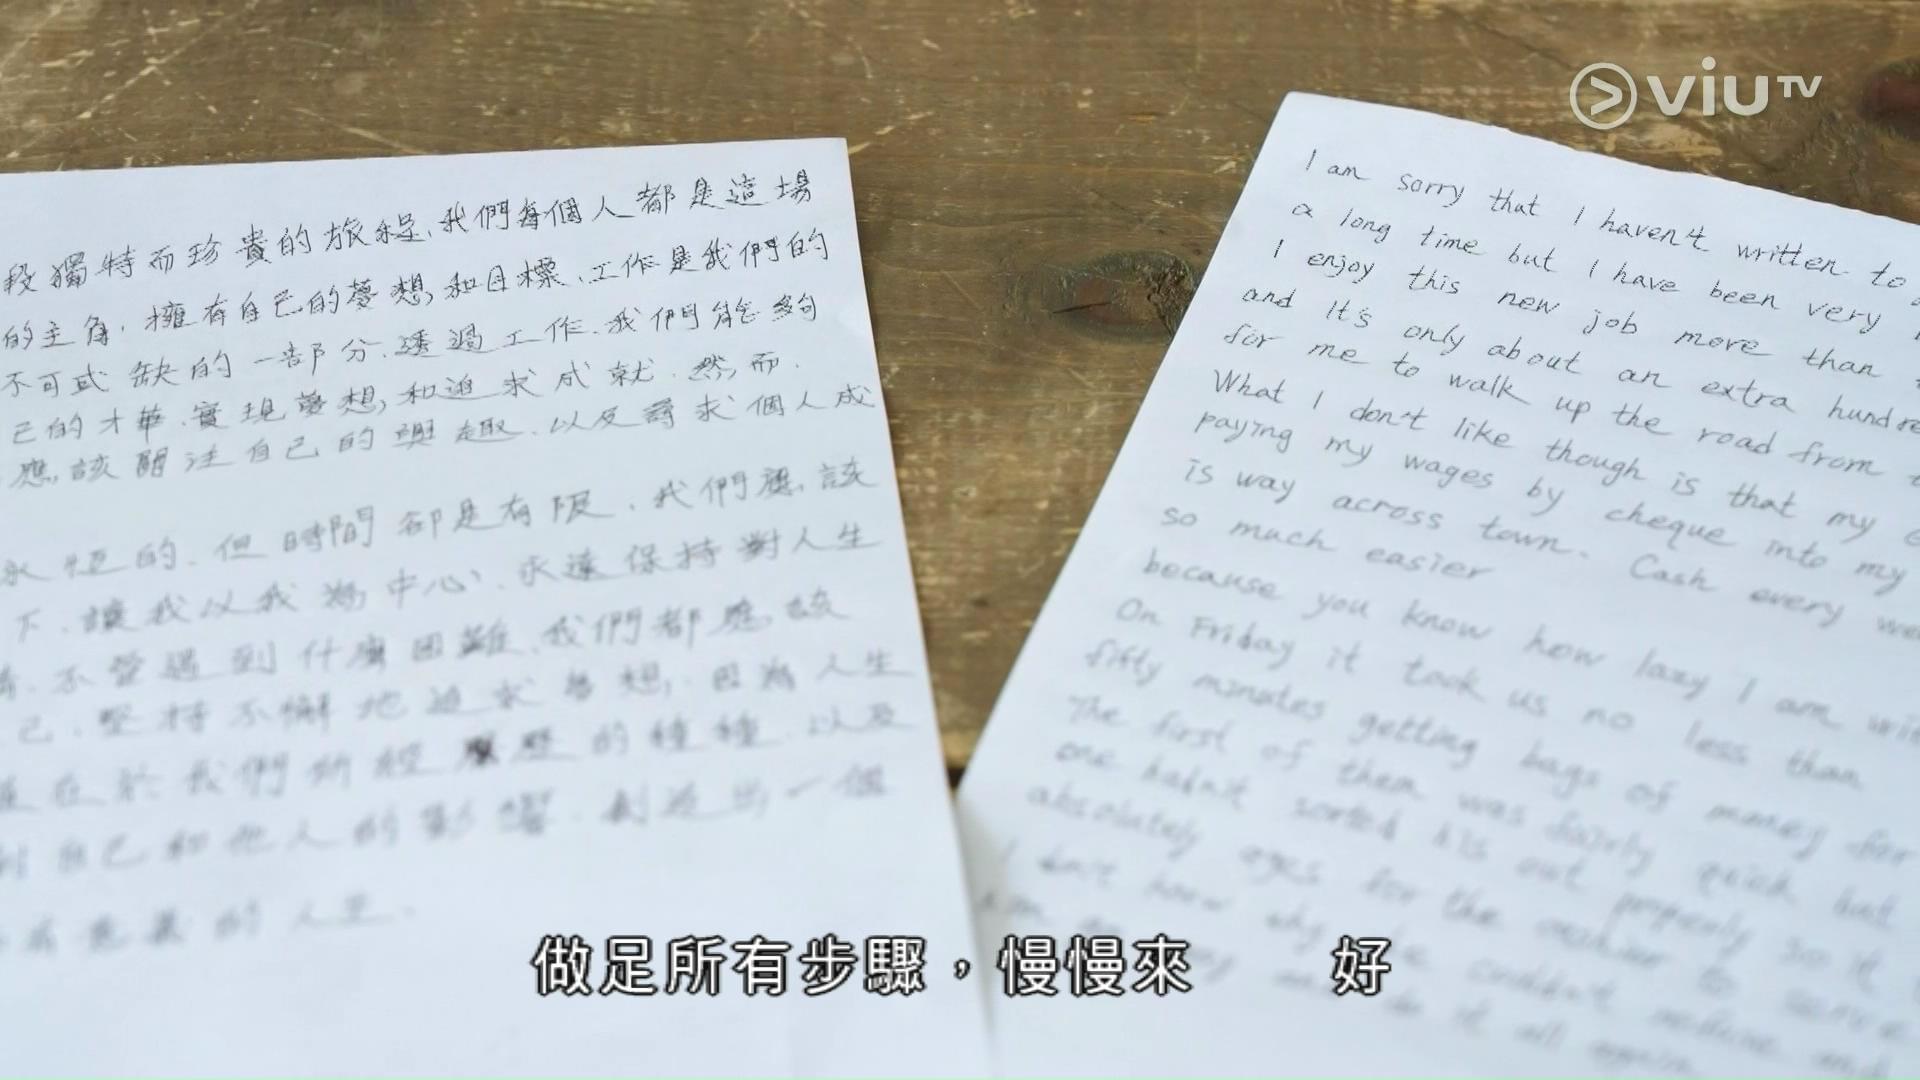 viu TV
段獨特而珍貴的旅程、我們每個人都是這場
的主角，擁有自己的夢想，和目標、工作是我們的
不可或缺的一部分、透過工作、我們能夠
己的才華、實現夢想，和追求成就、然而、
應該關注自己的興趣、以及尋求個人成
永恆的、但時間卻是有限、我們應該
下、讓我以我為中心、永遠保持對人生
不管遇到什麼困難、我們都應該
己、堅持不懈地追求夢想、因為人生
在於我們所經歷的種種、以及
自己和他人的影響、創造出一個
有意義的人生、
I am sorry that I haven't written to
a long time but I have been very
I enjoy this new job more than
and It's only about an extra hundre
for me to walk up the road from
What I don't like though is that my
paying my wages by cheque into my
is way across town. Cash every wee
so much easier
because you know how lazy I am wi
On Friday it took us no less than
fifty minutes getting bags of money for
The first of them was fairly quick but
one hadn't sorted his out properly so it
absolutely ages for the cashier to
I don't know why he couldn't
it all again
做足所有步驟，慢慢來 好